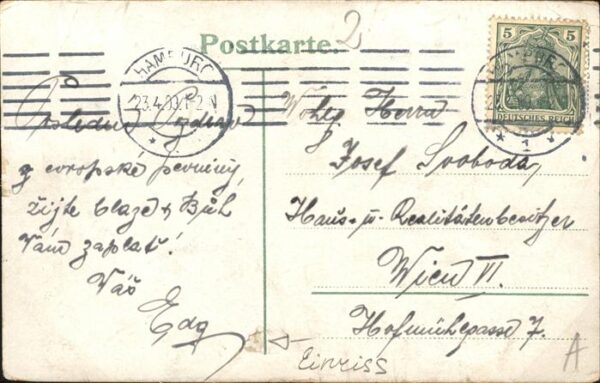 Postkarte.
2
HAMBURG
23.4.09.1-2N
* 1 *
5 5
DEUTSCHES REICH
Poslední
z evropské pevniny,
žijte blaze & Bůh
Vám zaplať!
Váš
Edg
Wohlg Herrn
Josef Svoboda,
Haus- u- Realitätenbesitzer
Wien VI.
Hofmühlgasse 7.
Einriss
A